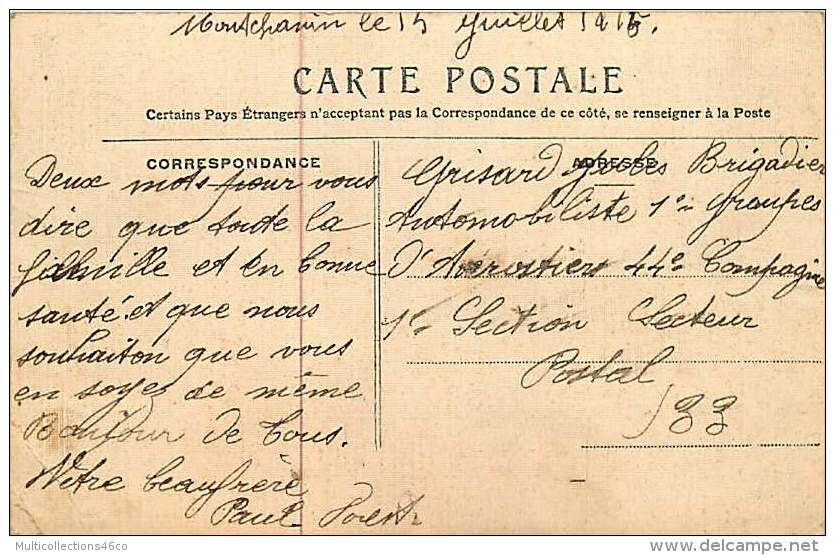 Montchanin le 15 Juillet 1916.
CARTE POSTALE
Certains Pays Étrangers n'acceptent pas la Correspondance de ce côté, se renseigner à la Poste
CORRESPONDANCE
Deux mots pour vous
dire que toute la
famille et en bonne
santé. et que nous
souhaiton que vous
en soyez de même
Bonjour de tous.
Votre beaufrère
Paul
ADRESSE
Grisard Jules Brigadier
Automobiliste 1e Groupes
d'Aérostiers 44e Compagine
1e Section Secteur
Postal
133
Multicollections46co
www.delcampe.net